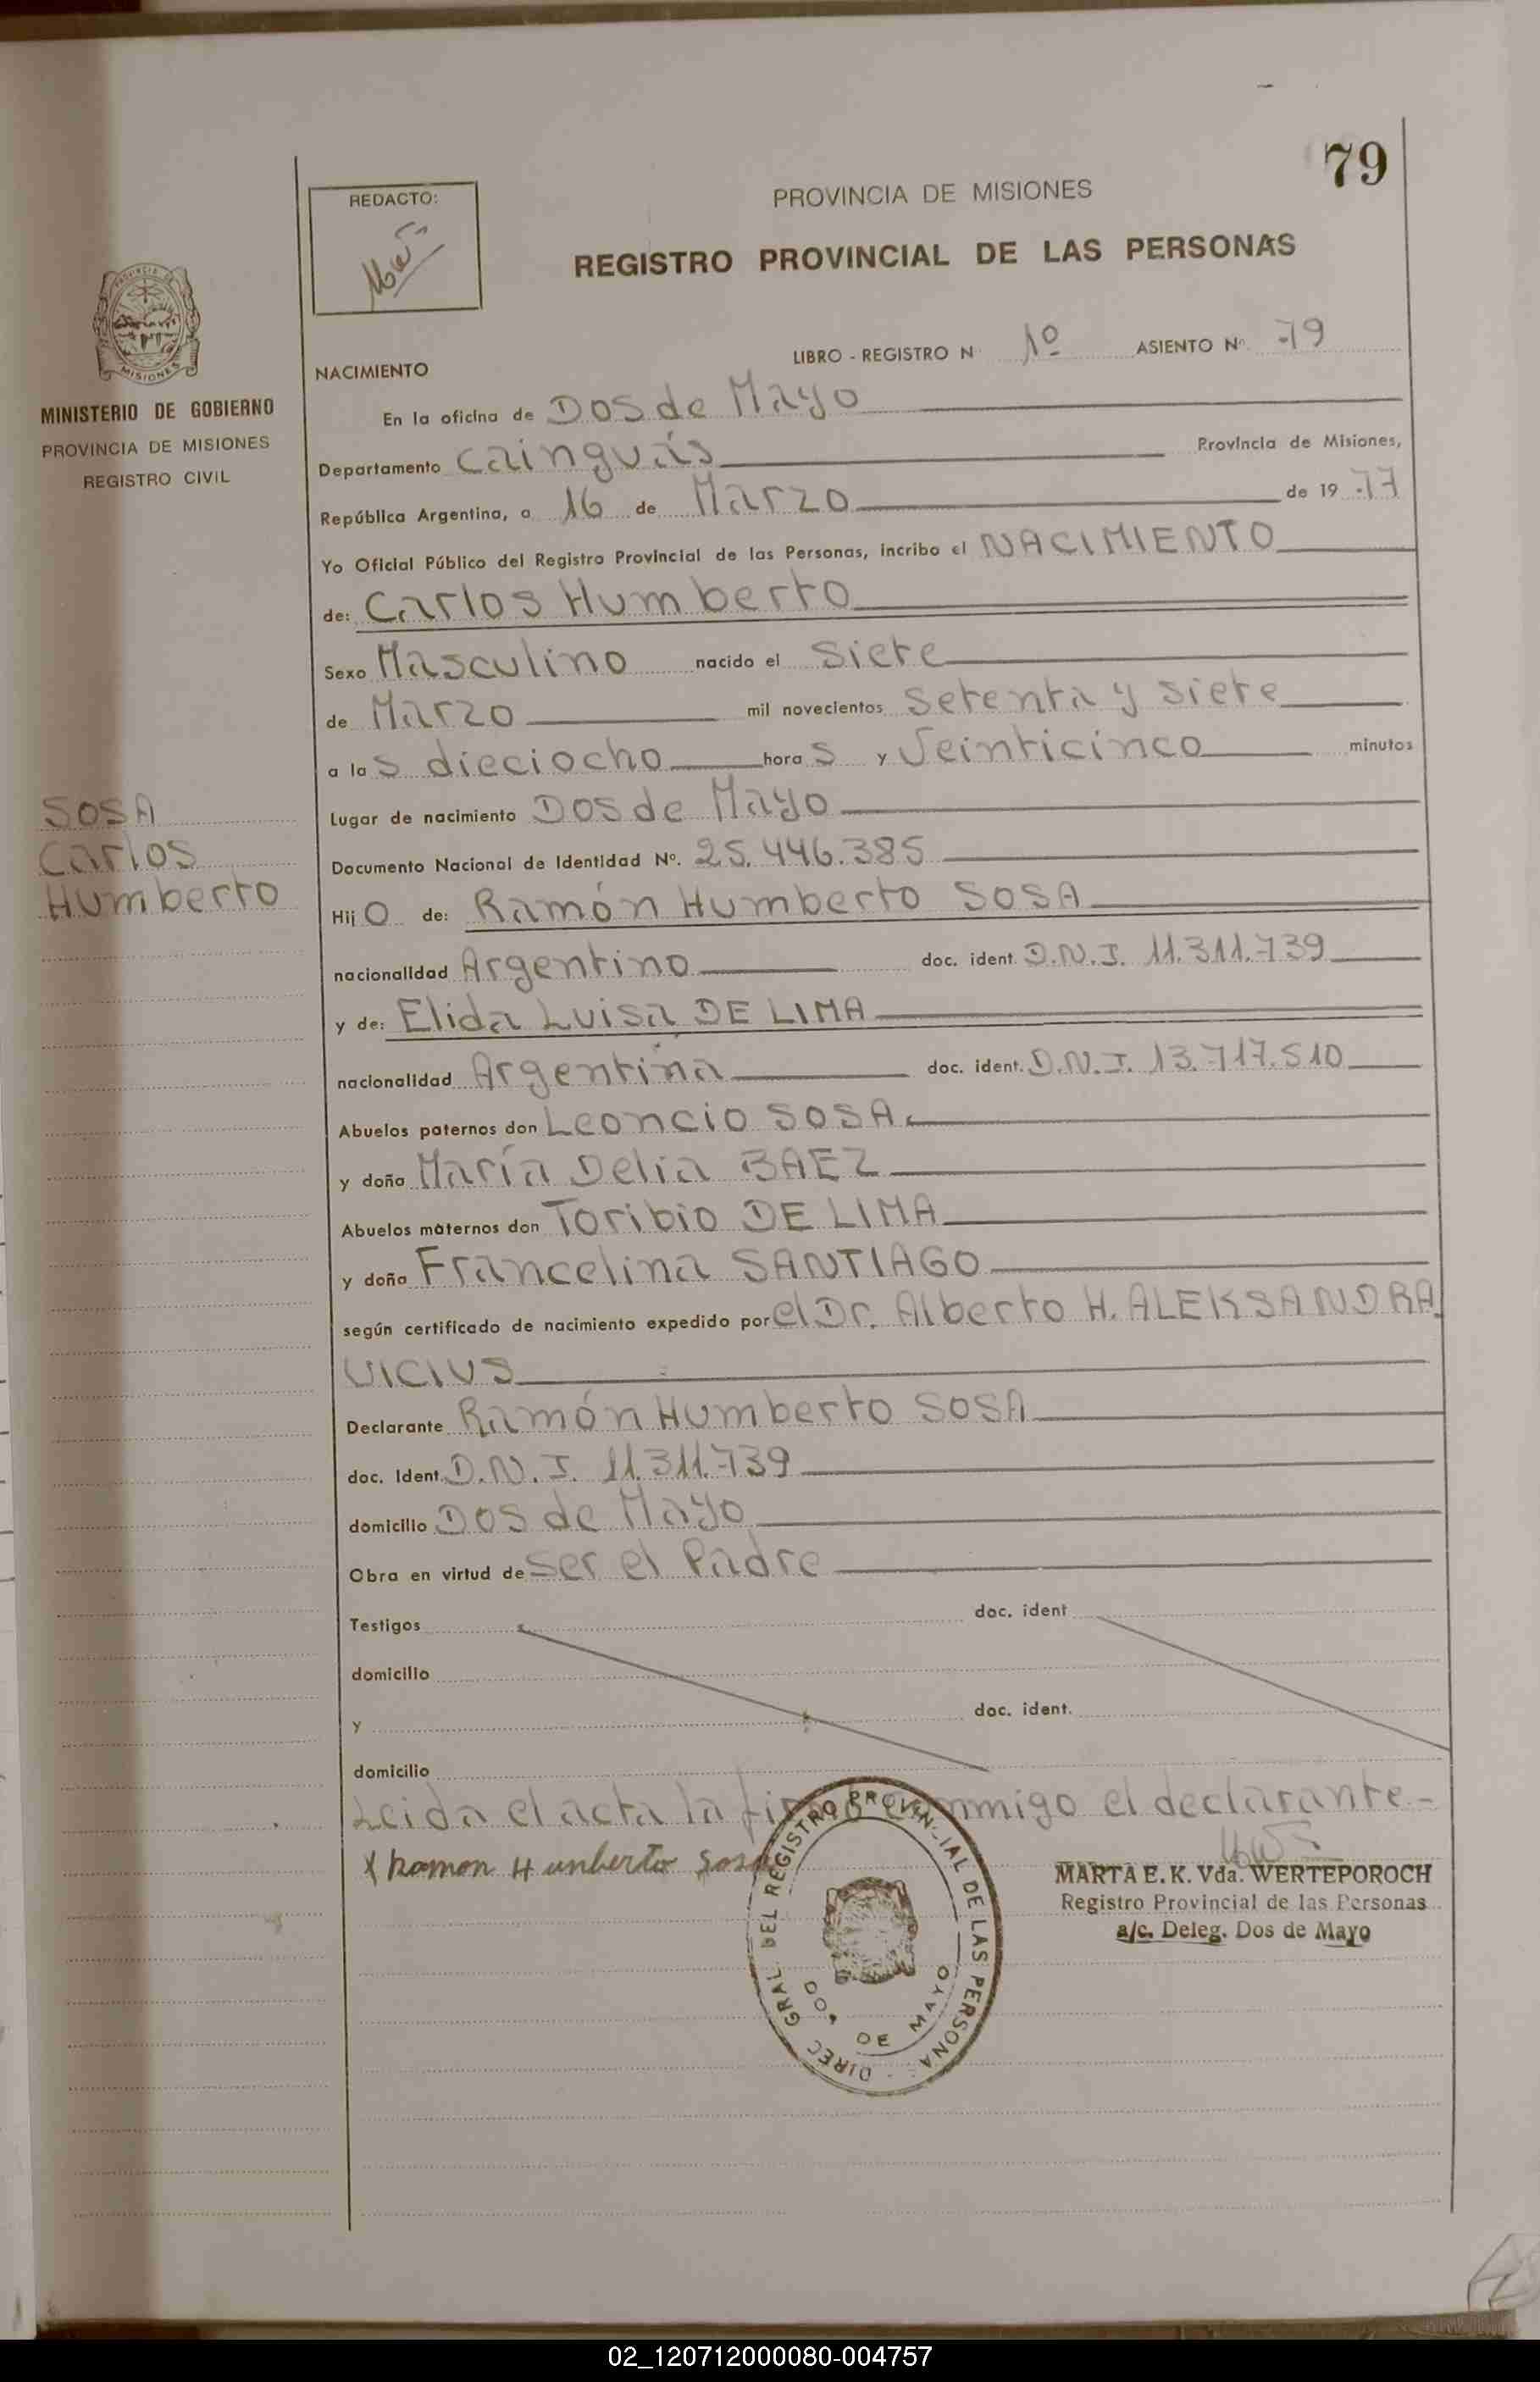 79
REDACTO:
PROVINCIA DE MISIONES
REGISTRO PROVINCIAL DE LAS PERSONAS
PROVINCIA DE
MISIONES
MINISTERIO DE GOBIERNO
PROVINCIA DE MISIONES
REGISTRO CIVIL
LIBRO - REGISTRO N 1º ASIENTO Nº 79
NACIMIENTO
En la oficina de Dos de Mayo
Departamento Cainguás Provincia de Misiones,
República Argentina, a 16 de Marzo de 19 77
Yo Oficial Público del Registro Provincial de las Personas, incribo el NACIMIENTO
de: Carlos Humberto
Sexo Masculino nacido el Siete
de Marzo mil novecientos Setenta y siete
a las dieciocho horas y Veinticinco minutos
Lugar de nacimiento Dos de Mayo
SOSA
Carlos
Humberto
Documento Nacional de Identidad Nº. 25.446.385
Hijo de: Ramón Humberto SOSA
nacionalidad Argentino doc. ident. D.N.I. 11.311.739
y de: Elida Luisa DE LIMA
nacionalidad Argentina doc. ident. D.N.I. 13.717.510
Abuelos paternos don Leoncio SOSA
y doña María Delia BAEZ
Abuelos maternos don Toribio DE LIMA
y doña Francelina SANTIAGO
según certificado de nacimiento expedido por el Dr. Alberto H. ALEKSANDRA_
VICIUS
Declarante Ramón Humberto SOSA
doc. Ident. D.N.I. 11.311.739
domicilio Dos de Mayo
Obra en virtud de Ser el Padre
Testigos doc. ident
domicilio
y doc. ident.
domicilio
Leida el acta la firmó conmigo el declarante.-
X Ramon Hunberto Sosa
MARTA E. K. Vda. WERTEPOROCH
Registro Provincial de las Personas
a/c. Deleg. Dos de Mayo
DIREC GRAL DEL REGISTRO PROVINCIAL DE LAS PERSONAS
DOS DE MAYO
02_120712000080-004757